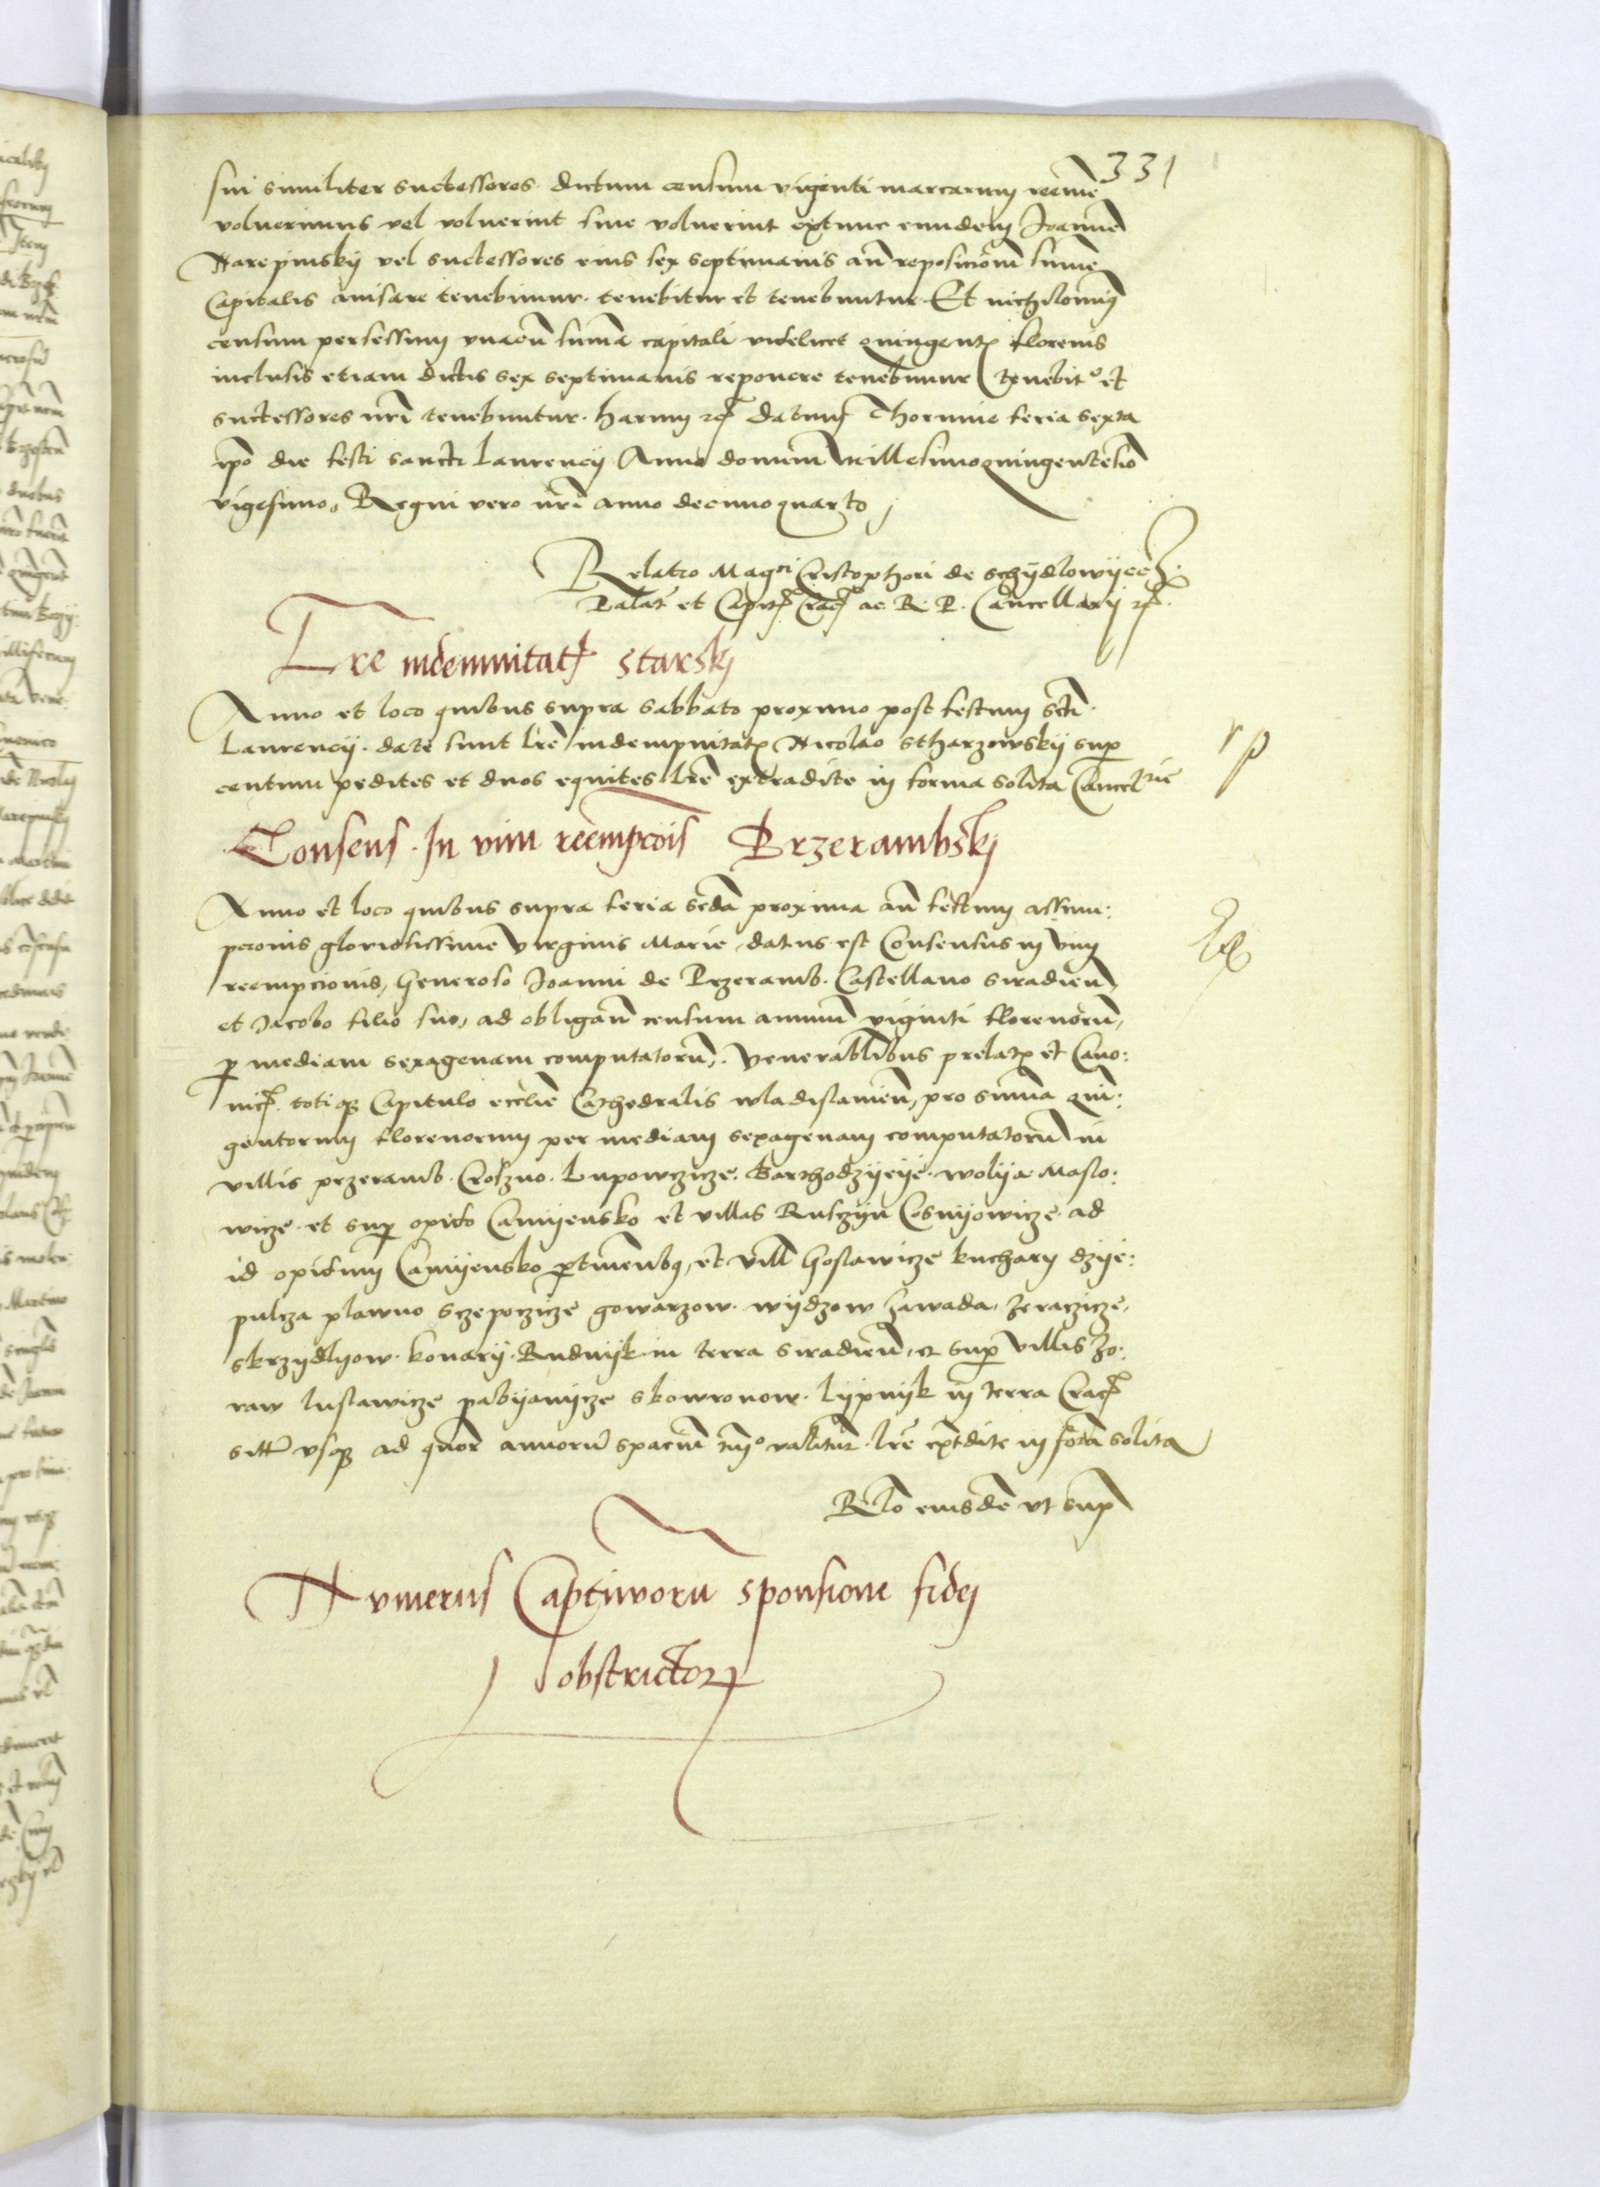 331
sui similiter successores dictum censum viginti marcarum reeme͂
voluerimus vel voluerint sive voluerint extunc eundem Joanne͂
Narepinskij vel successores eius sex septimanis an̄ reposiciōnē sum̄e
Capitalis avisare tenebimur. tenebitur et tenebuntur. Et nichilomin͂
censum persessum unacū sum̄a capitali videlicet quingentꝭ florenis
inclusis etiam dictis sex septimanis reponere tenebimur tenebitꝰ et
successores nr̄i tenebuntur. harum etc̄ datum Thorunie feria sexta
ip̄o die festi sancti Laurencij Anno domini Millesimoquingentesiō
vigesimo, Regni vero nr̄i anno decimoquarto
Relatio Magci Cristophori de Schÿdlowÿecz
Palat̄ et Capit̄ Crac̄ ac R. P. Cancellarij etc̄.
Lr̄e indemnitatꝭ starskj
Anno et loco quibus supra sabbato proximo post festum scti
Laurencij. date sunt lr̄e indempnitatꝭ Nicolao Stharzowskij sup̄
centum pedites et duos equites lr̄e extradite in forma solita Cancelrie
Consens. In vim reēmpcōis Przerambskj
Anno et loco quibus supra feria scd̄a proxima an̄ festum assum:
pcionis gloriosissime virginis Marie, datus est Consensus in vim
reempcionis, Generoso Joanni de Przeramb. Castellano siradien̄
et Jacobo filio suo, ad obligan̄ censum annuū viginti florenorū,
ꝑ mediam sexagenam computatorū. Venerabilibus prelatꝭ et Cano:
nicꝭ totiqꝫ Capitulo eccl̄ie Cathedralis wladislavien̄, pro sum̄a quin:
gentorum florenorum per mediam sexagenam computatorū in
villis przeramb. Croszno. Lupowczicze. Barthodzÿeÿe. wolÿa. Maslo:
wicze. et sup̄ opido Camÿensko et villas Ruszÿn Cosnÿowicze ad
id opidum Camÿensko ꝑtinentibꝰ, et vill̄ Goslawicze kucharÿ dzÿe:
pulcza plawno sczepoczicze gowarzow. wÿdzow zawada, zeraczicze,
skrzÿdlÿow. konarÿ. Rudnÿk in terra siradien̄, et sup̄ villis zo:
raw luslawicze pabÿanÿcze skowronow. Lÿpnÿk in terra Crac̄
sitꝭ usqꝫ ad quor̄ annorū spaciū tmͦ valitur̄. lr̄e ext̄dite in form̄a solita
Rlō eiusdē ut sup̄
Numerus Captivorū sponsione fidej
obstrictorꝝ